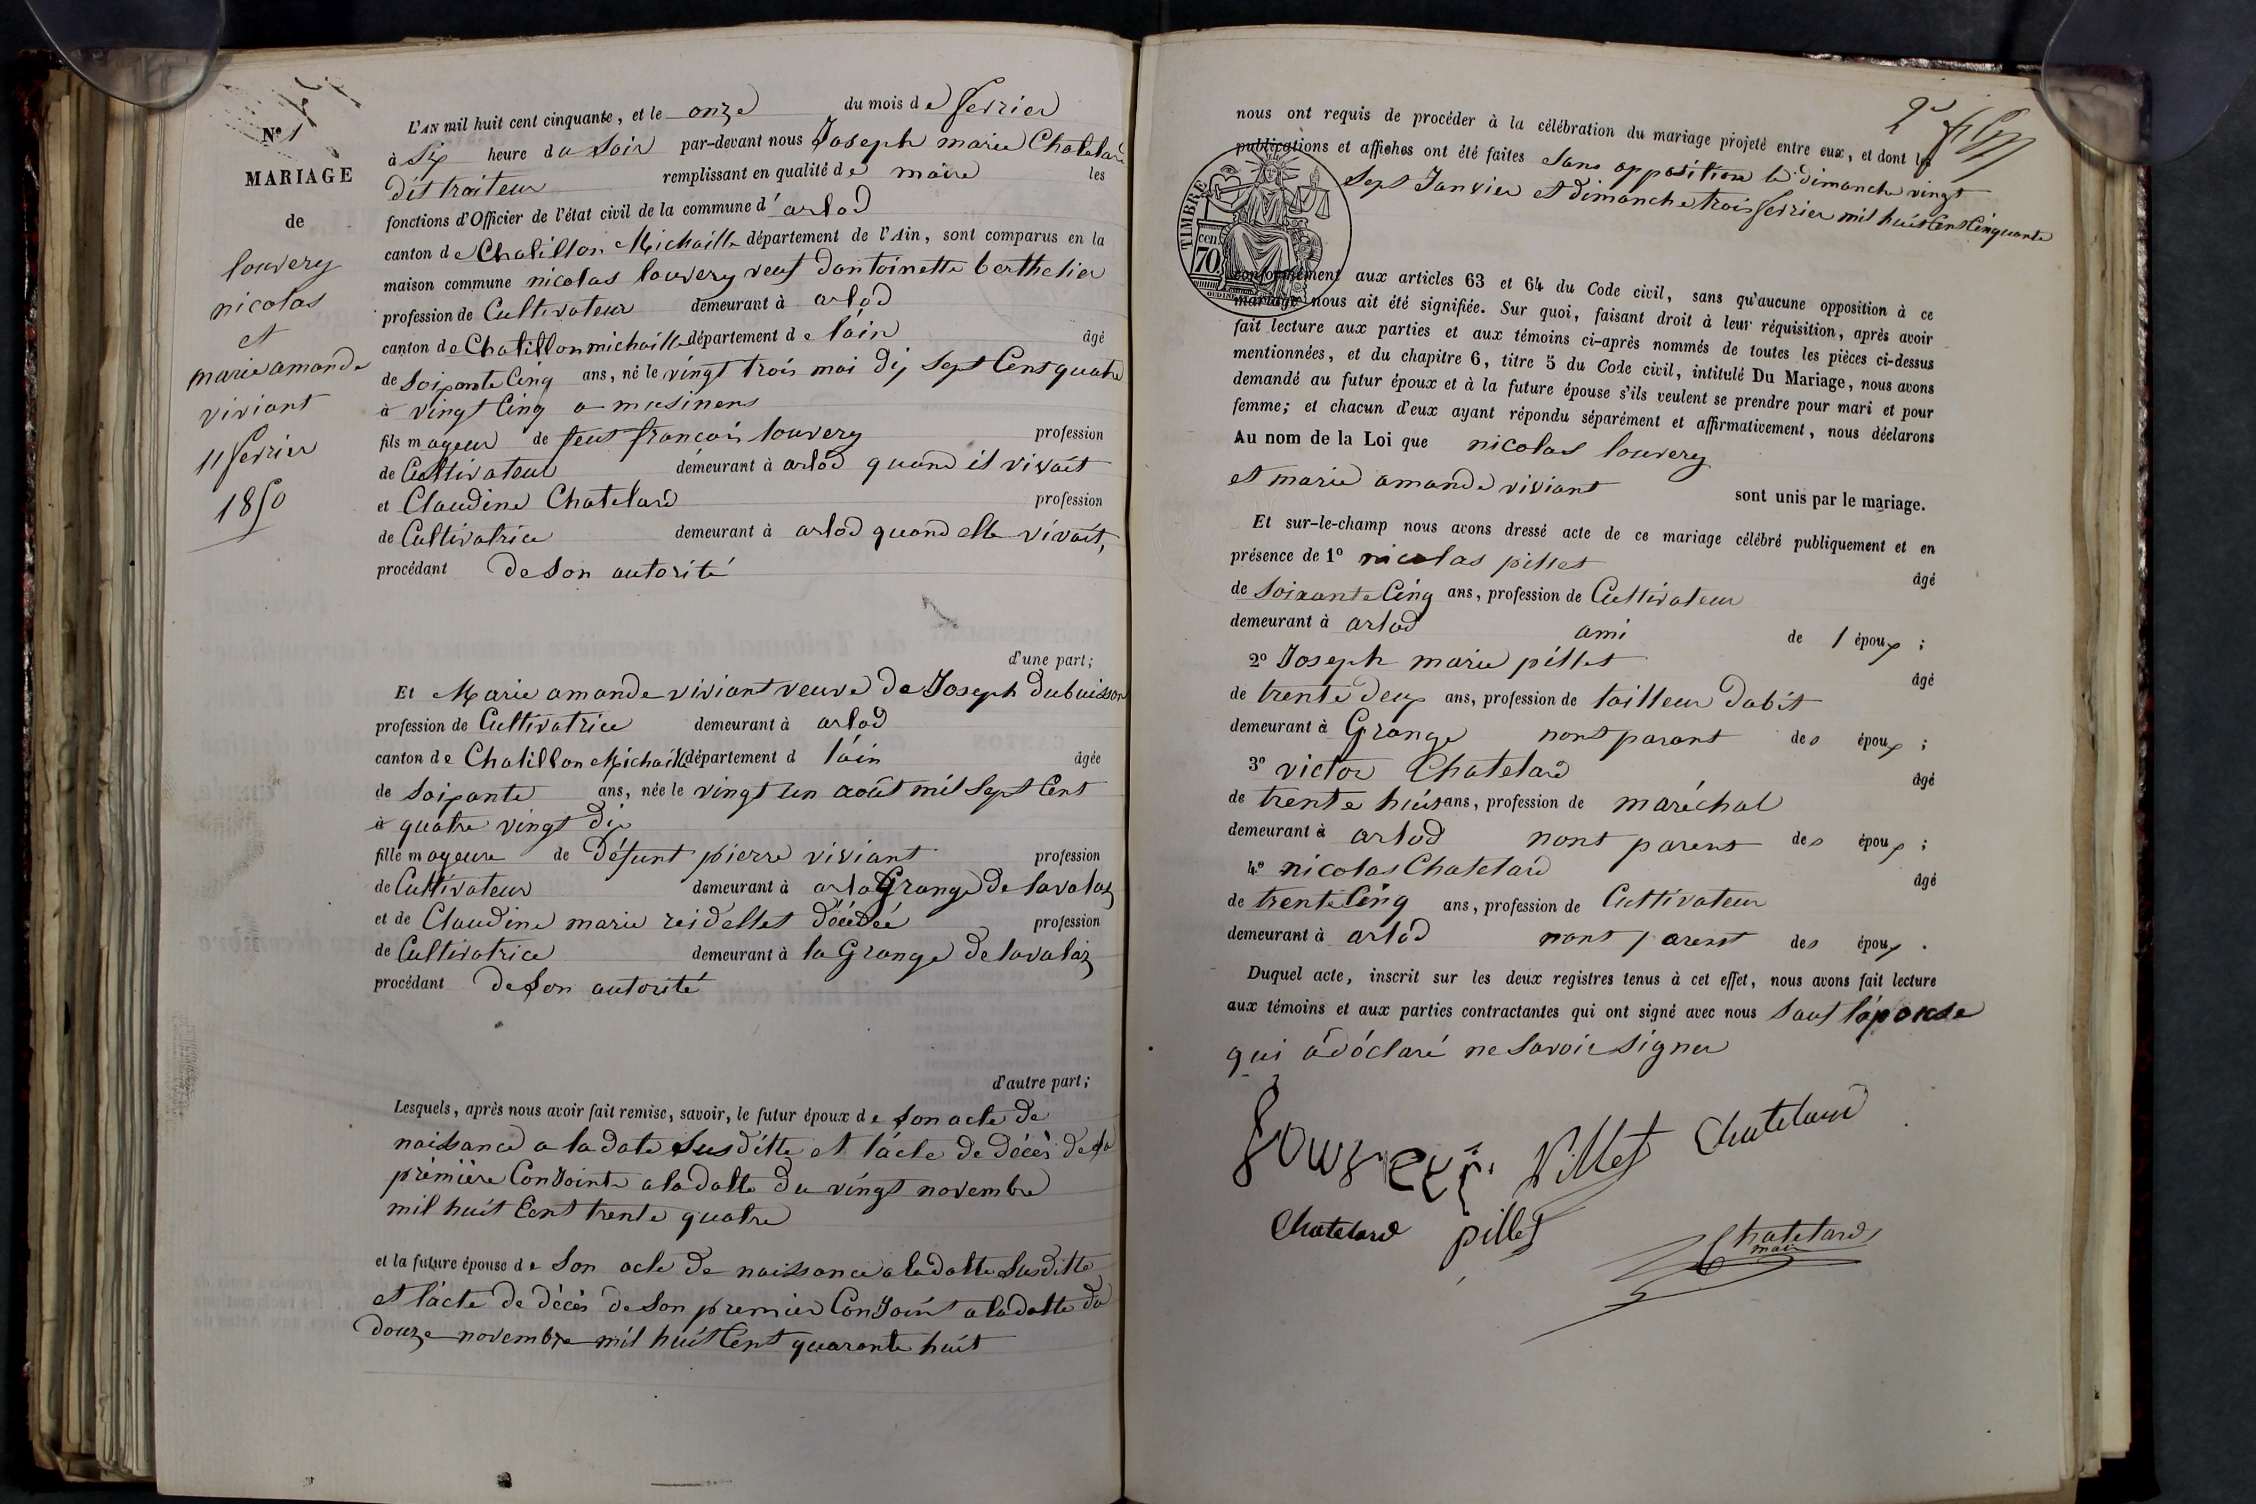 N° 1
MARIAGE
de
louvery
nicolas
et
marie amande
viviant
11 fevrier
1850
L'AN mil huit cent cinquante, et le onze du mois de fevrier
à Six heure du Soir par-devant nous Joseph marie Chatelard
dit traiteur remplissant en qualité de maire les
fonctions d'Officier de l'état civil de la commune d' arlod
canton de Chatillon Michaille département de l'Ain, sont comparus en la
maison commune nicolas louvery veuf dantoinette berthelier
profession de Cultivateur demeurant à arlod
canton de Chatillon michaille département de lain âgé
de Soixante Cinq ans, né le vingt trois mai dix Sept Cent quatre
à vingt Cinq a musinens
fils mageur de feut françois louvery profession
de Cultivateur demeurant à arlod quand il vivait
et Claudine Chatelard profession
de Cultivatrice demeurant à arlod quand elle vivait,
procédant de Son autorité
d'une part;
Et Marie amande viviant veuve de Joseph dubuisson
profession de Cultivatrice demeurant à arlod
canton de Chatillon Michaille département d lain âgée
de Soixante ans, née le vingt un août mil Sept Cent
à quatre vingt dix
fille mageure de défunt pierre viviant profession
de Cultivateur demeurant à Grange de lavalaz
et de Claudine marie reidellet décédée profession
de Cultivatrice demeurant à la Grange de lavalaz
procédant de Son autorité
d'autre part;
Lesquels, après nous avoir fait remise, savoir, le futur époux de Son acte de
naissance a la date Susditte et lacte de décès de Sa
première Conjointe a la datte du vingt novembre
mil huit Cent trente quatre
et la future épouse de Son acte de naissance a la datte Susditte
et lacte de décès de Son premier Conjoint a la datte du
douze novembre mil huit Cent quarante huit
nous ont requis de procéder à la célébration du mariage projeté entre eux, et dont les
publications et affiches ont été faites Sans opposition le dimanche vingt
Sept Janvier et dimanche trois fevrier mil huit Cent Cinquante
TIMBRE
70 cen.
conformément aux articles 63 et 64 du Code civil, sans qu'aucune opposition à ce
mariage nous ait été signifiée. Sur quoi, faisant droit à leur réquisition, après avoir
fait lecture aux parties et aux témoins ci-après nommés de toutes les pièces ci-dessus
mentionnées, et du chapitre 6, titre 5 du Code civil, intitulé Du Mariage, nous avons
demandé au futur époux et à la future épouse s'ils veulent se prendre pour mari et pour
femme; et chacun d'eux ayant répondu séparément et affirmativement, nous déclarons
Au nom de la Loi que nicolas louvery
et marie amande viviant sont unis par le mariage.
Et sur-le-champ nous avons dressé acte de ce mariage célébré publiquement et en
présence de 1° nicolas pillet âgé
de Soixante Cinq ans, profession de Cultivateur
demeurant à arlod ami de l époux ;
2° Joseph marie pillet âgé
de trente deux ans, profession de tailleur dabit
demeurant à Grange nont parant des époux ;
3° victor Chatelard âgé
de trente huit ans, profession de maréchal
demeurant à arlod nont parent des époux ;
4° nicolas Chatelard âgé
de trente Cinq ans, profession de Cultivateur
demeurant à arlod nont parent des époux .
Duquel acte, inscrit sur les deux registres tenus à cet effet, nous avons fait lecture
aux témoins et aux parties contractantes qui ont signé avec nous Sauf lépouse
qui a déclaré ne Savoir Signer
Pillet Chatelard
Chatelard pillet Chatelard
maire